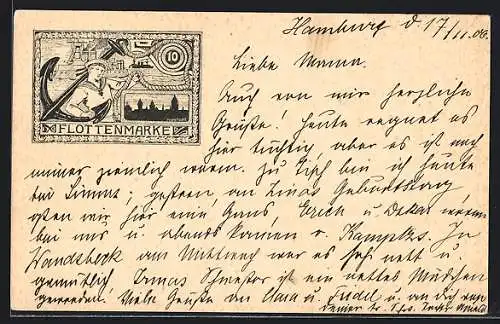 Hamburg d. 17/11.06.
10
FLOTTENMARKE
Liebe Mama.
Auch von mir herzliche
Grüße! Heute regnet es
hier tüchtig, aber es ist noch
immer ziemlich warm. Zu Tisch bin ich heute
bei ; gestern, an Linas Geburtstag,
aßen wir hier eine Gans, Erich u. Oskar waren
bei uns u. abends kamen v. Kamptz. In
Wandsbeck am Mittwoch war es sehr nett u.
gemütlich. Irmas Schwester ist ein nettes Mädchen
geworden. Viele Grüße an u. Friedel u. an dich von
deiner